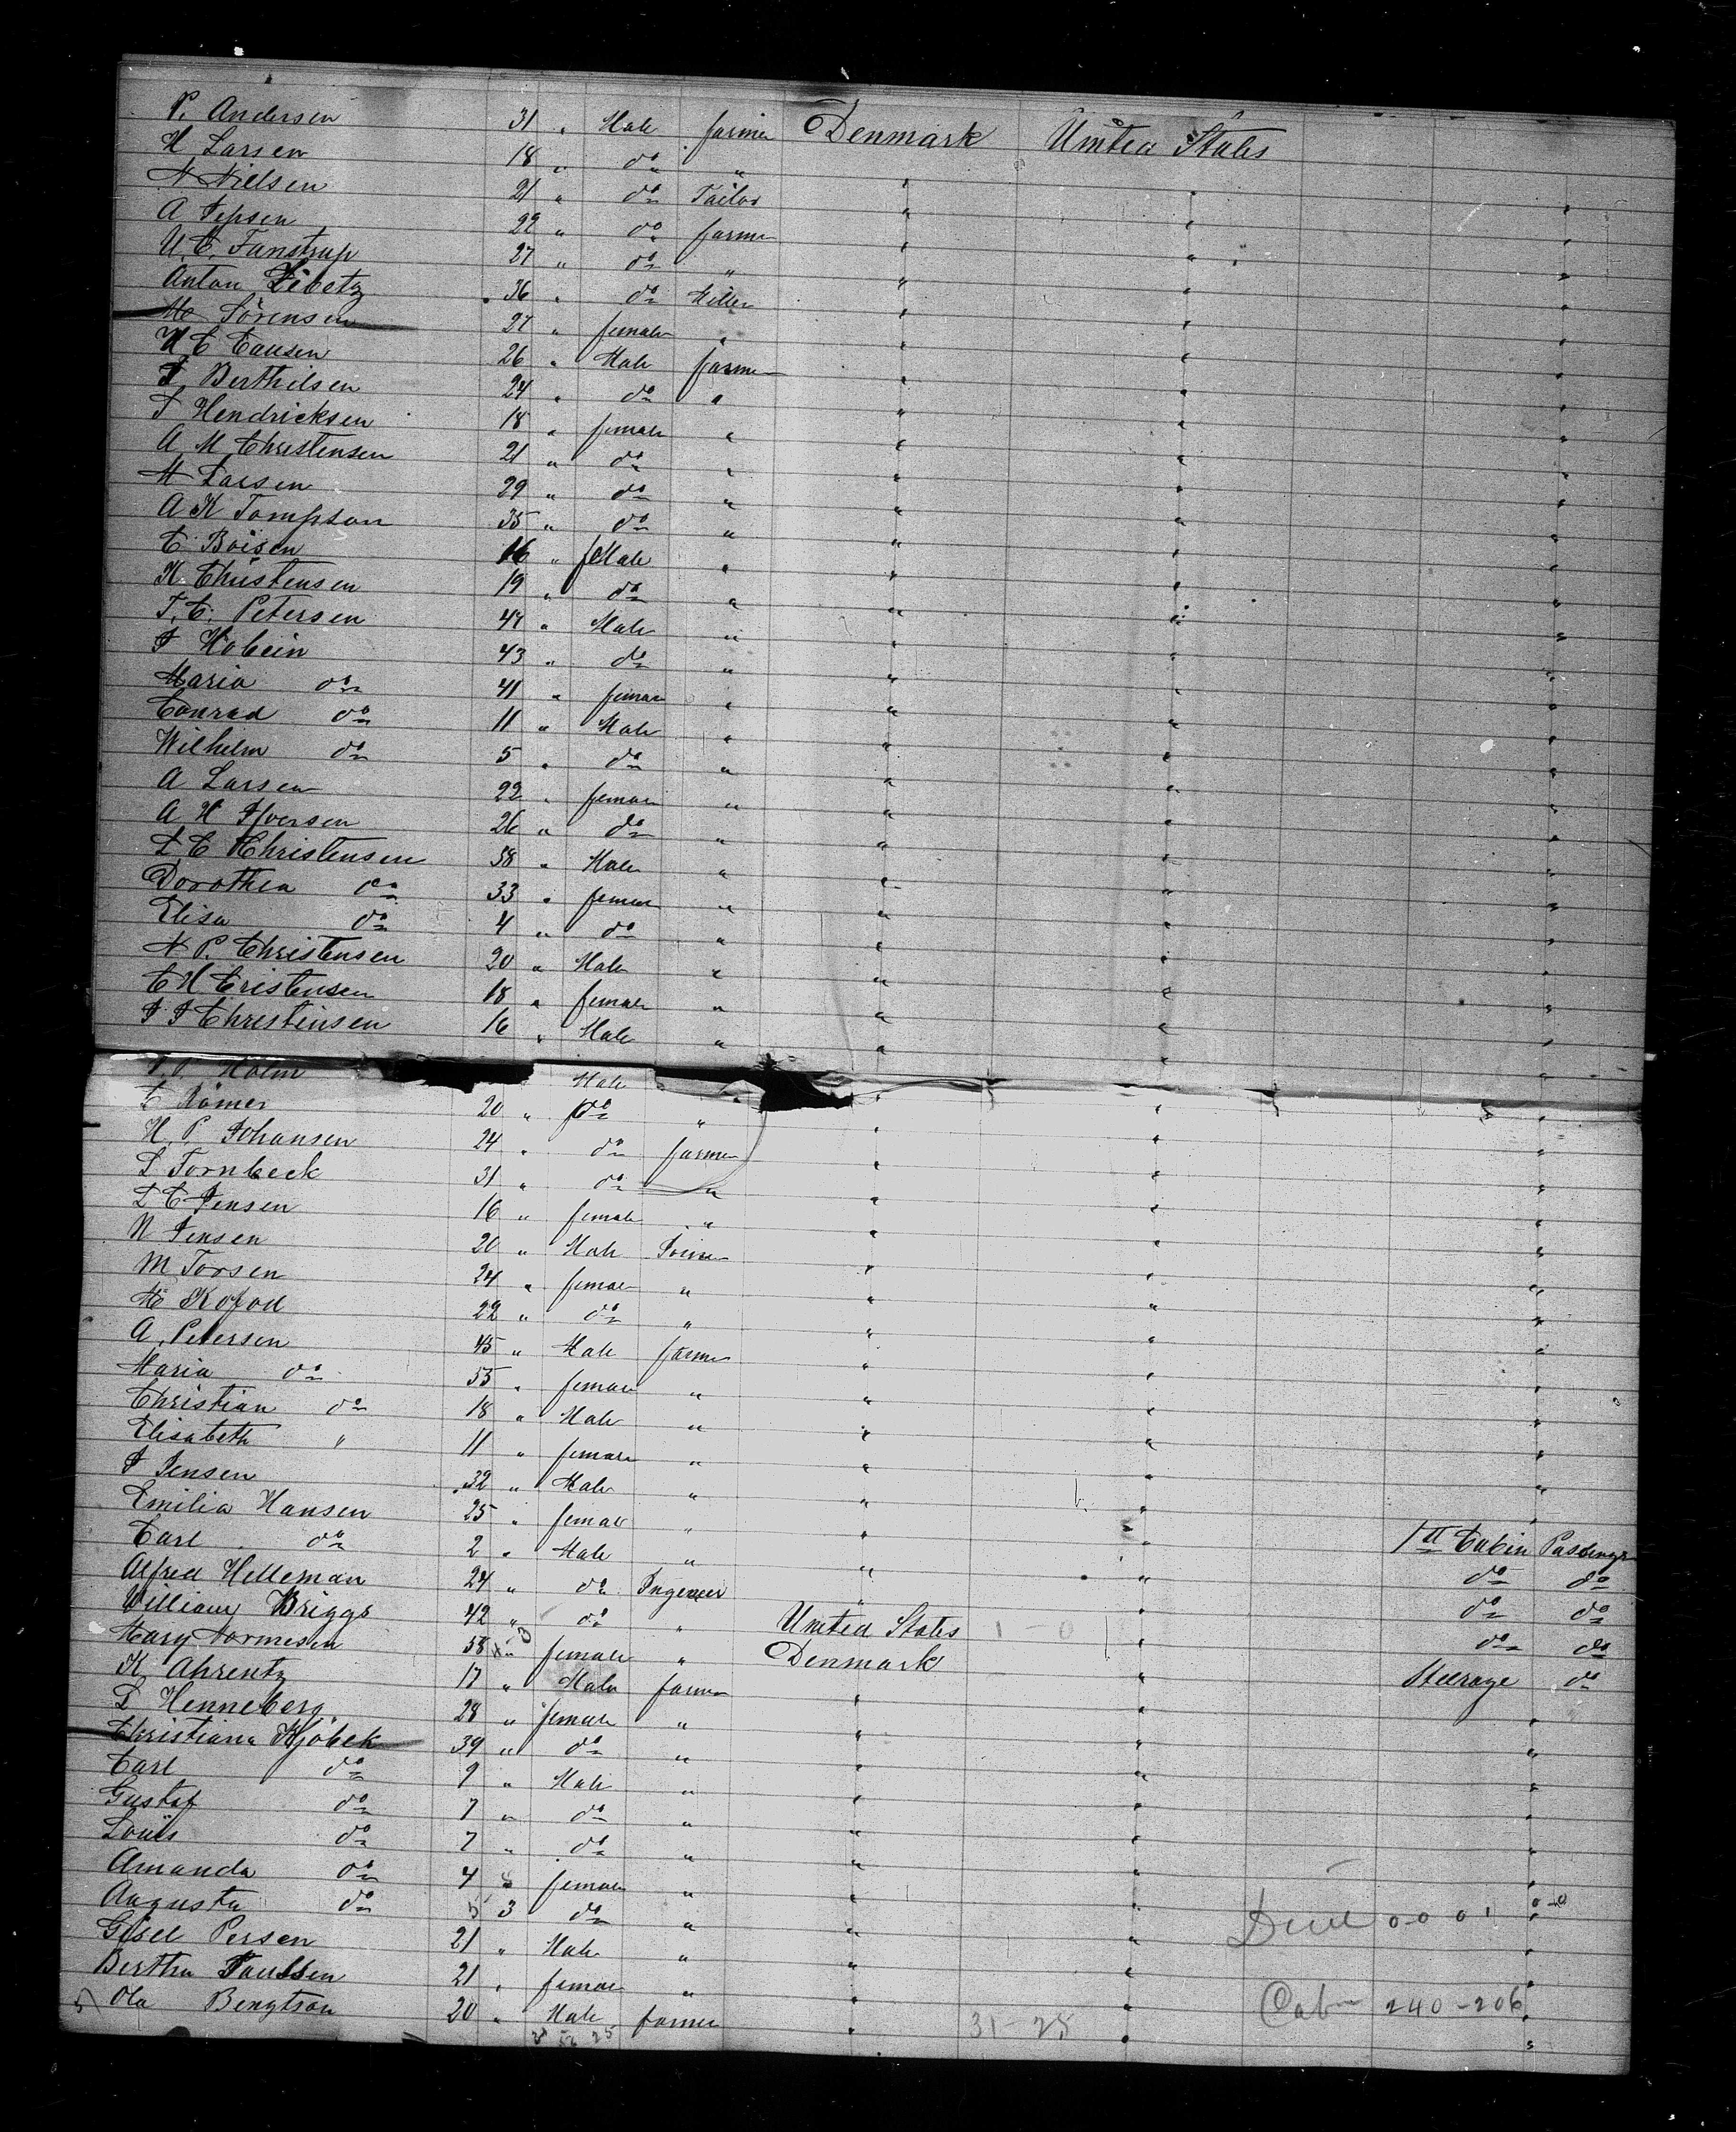 P. Andersen 31 " Male farmer Denmark United States
H Larsen 18 " do "
N Nielsen 21 " do Tailor " " "
A Jepsen 22 " do farmer " " "
U. C. Tanstrup 27 " do " " " "
Anton 36 " do Miller " " "
Me Sörensen 27 " female " " " "
N C Causen 26 " Male farmer " " "
Berthilsen 24 " do " " " "
Hendricksen 18 " female " " " "
A M Christensen 21 " do " " " "
M Larsen 29 " do " " " "
A K Tompson 35 " do " " " "
C Boisen 16 " feMale " " " "
K. Christensen 19 " do " " " "
T. C. Petersen 47 " Male " " " "
43 " do " " " "
Maria do 41 " female " " " "
Conrad do 11 " Male " " " "
Wilhelm do 5 " do " " " "
A Larsen 22 " female " " " "
A H Iversen 26 " do " " " "
L C Christensen 38 " Male " " " "
Dorothea do 33 " female " " " "
Elisa do 4 " do " " " "
N P. Christensen 20 " Male " " " "
C H Cristensen 18 " female " " " "
J J Christensen 16 " Male " " " "
Holm Male
C Römer 20 " do " " " "
H. P. Johansen 24 " do farmer " " "
L Tornbeck 31 " do " " " "
L C Jensen 16 " female " " " "
N Jensen 20 " Male " " "
M Torsen 24 " female " " " "
Me Kofod 22 " do " " " "
A. Petersen 45 " Male farmer " " "
Maria do 55 " female " " " "
Christian do 18 " Male " " " "
Elisabeth " 11 " female " " " "
J Jensen 32 " Male " " " "
Emilia Hansen 25 " female " " "
Carl do 2 " Male " " " 1st Cabin Passenger
Alfred Helleman 24 " do Ingeneer " " do do
William Briggs 42 " do " United States 1 - 0 " do do
Mary 58 " female " Denmark " do do
K Ahrentz 17 " Male farmer " " Steerage do
L Henneberg 28 " female " " " "
Christiana Kjöbek 39 " do " " " "
Carl do 9 " Male " " " "
Gustaf do 7 " do " " " "
Louis do 7 " do " " " "
Amanda do 4 female " " " "
Augusta do 5 3 do " " " 0 0 0 1
Persen 21 " Male " " " "
Bertha Paulsen 21 " female " " " "
Ola Bengtson 20 " Male farmer " 31 - 25 " Cab 240 - 206